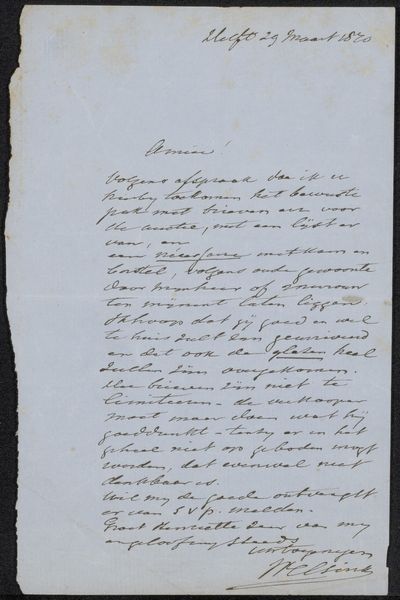 Delft 29 Maart 1870
Amice!
Volgens afspraak doe ik u
hierby toekomen het bewuste
pak met brieven enz voor
de auctie, met een lijst er
van, en
een met kam en
borstel, volgens oude gewoonte
door Mynheer of Mevrouw
ten mijnent laten liggen.
Ik hoop dat gij goed en wel
te huis zult zyn
en dat ook de glazen heel
zullen zijn overgekomen.
De brieven zijn niet te
limiteren - de verkooper
moet maar doen wat hij
goeddunkt - tenzy er in het
geheel niet op geboden mogt
worden, dat evenwel niet
denkbaar is.
Wil my de goede ontvangst
er van s v p. melden.
Groet Henriette zeer van my
en geloof my steeds